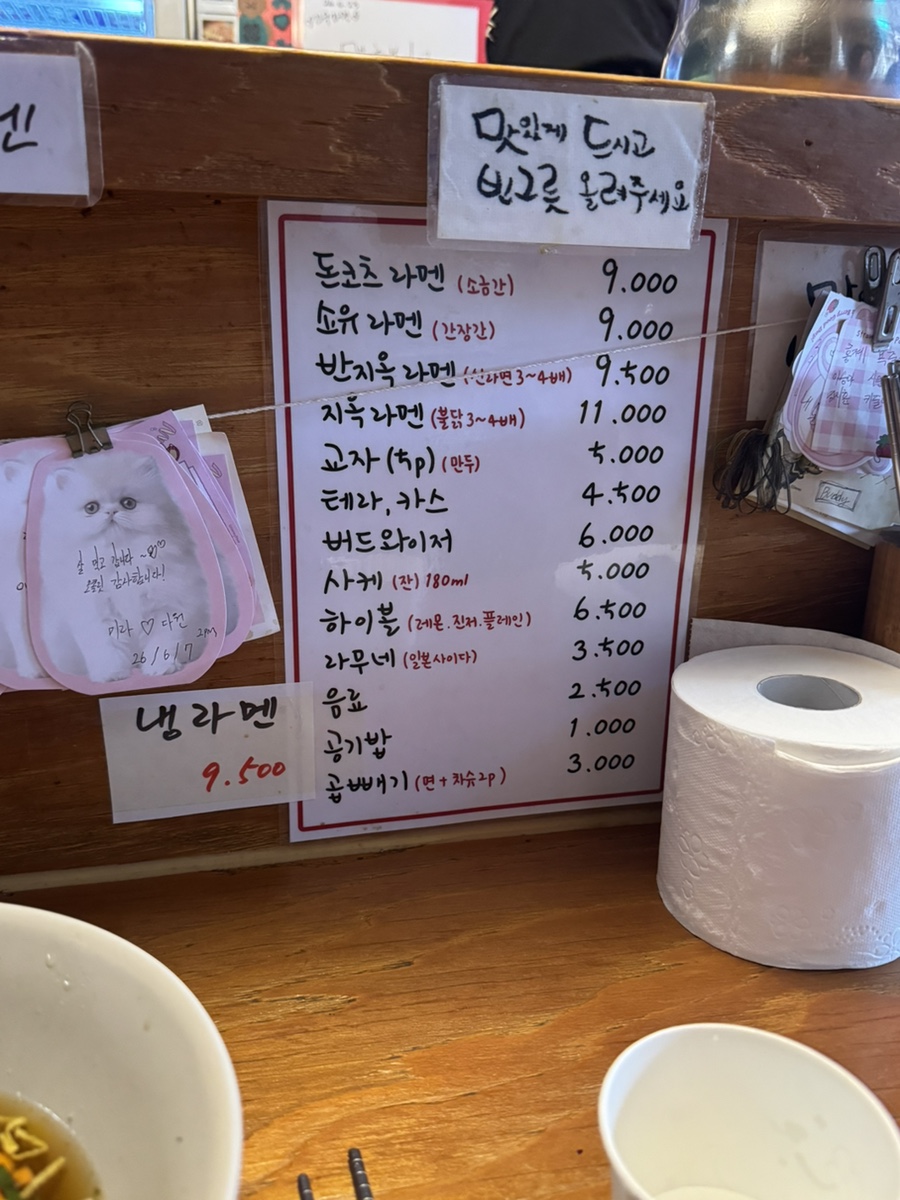 멘
맛있게 드시고
빈그릇 올려주세요
돈코츠 라멘 (소금간) 9.000
쇼유 라멘 (간장간) 9.000
반지옥 라멘 (신라면 3~4배) 9.500
지옥라멘 (불닭 3~4배) 11.000
교자 (5p) (만두) 5.000
테라, 카스 4.500
버드와이저 6.000
사케 (잔) 180ml 5.000
하이볼 (레몬.진저.플레인) 6.500
라무네 (일본사이다) 3.500
음료 2.500
공기밥 1.000
곱빼기 (면 + 차슈2p) 3.000
냉라멘
9.500
잘 먹고 갑니다 ~
감사합니다!
미라 ♡ 다원
26/6/7
Buddy